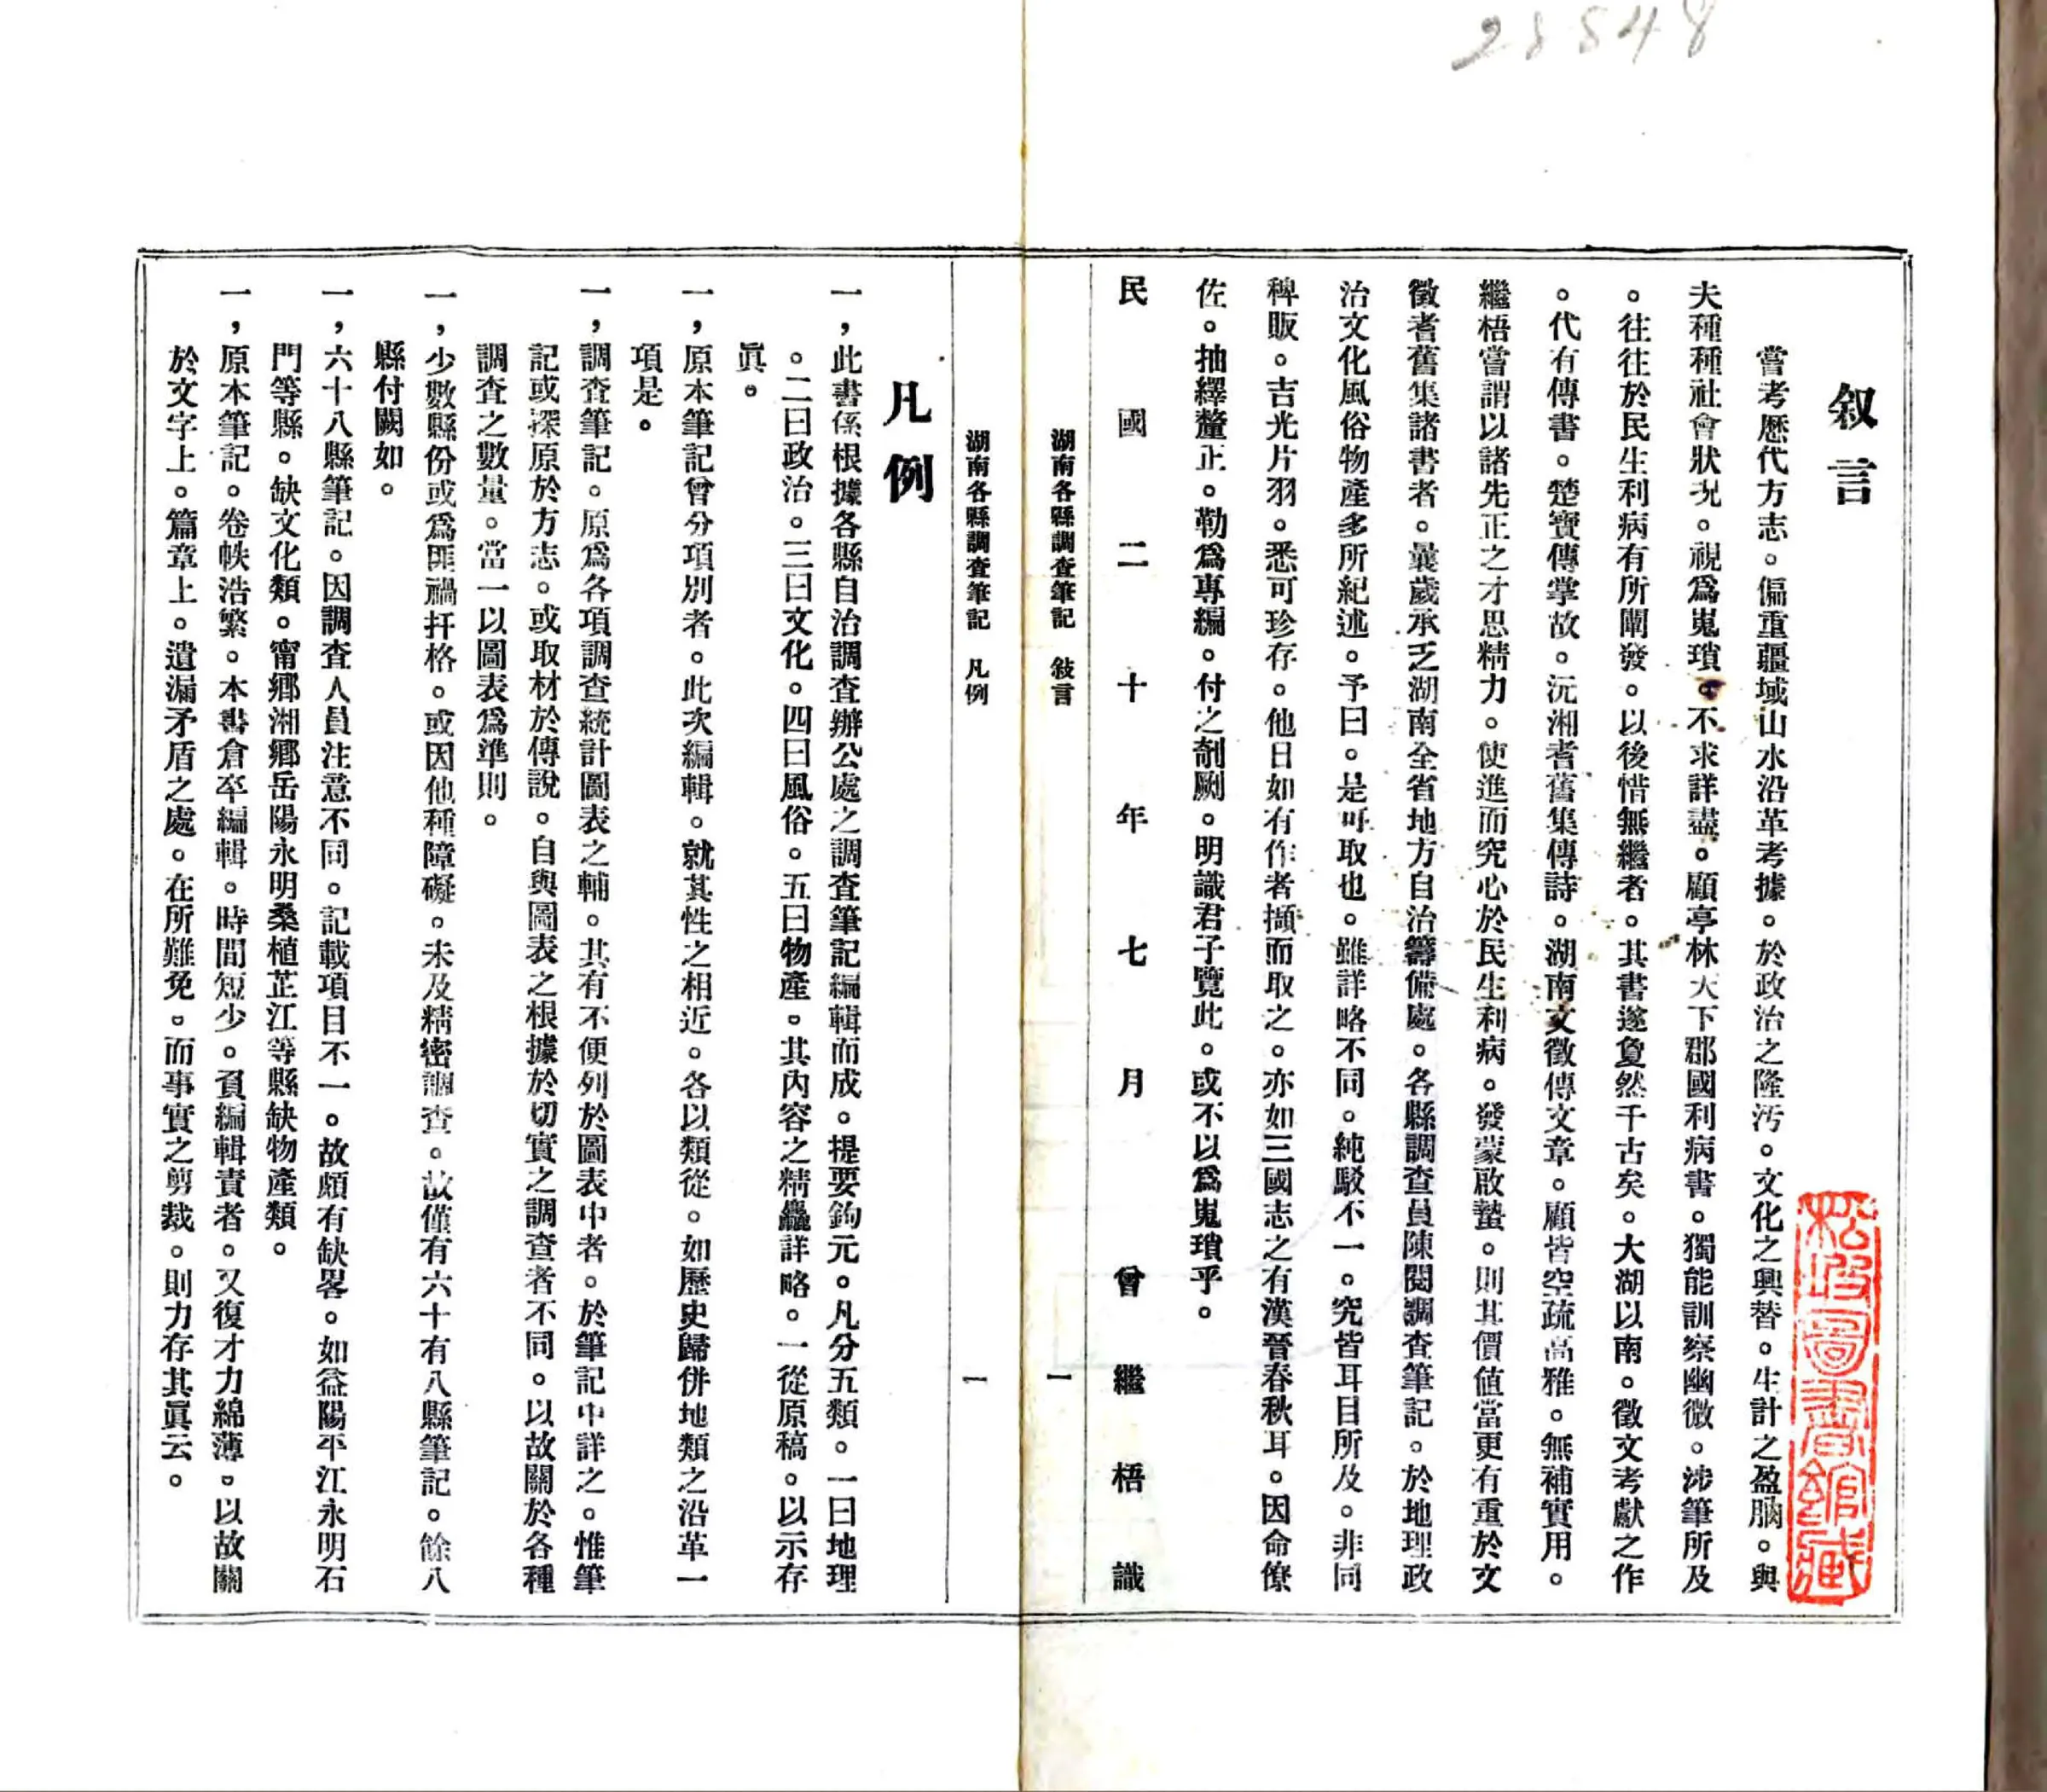 28548
叙言
嘗考歷代方志。偏重疆域山水沿革考據。於政治之隆汚。文化之興替。生計之盈朒。與
夫種種社會狀況。視爲嵬瑣。不求詳盡。顧亭林天下郡國利病書。獨能訓察幽微。涉筆所及
。往往於民生利病有所闡發。以後惜無繼者。其書遂敻然千古矣。大湖以南。徵文考獻之作
。代有傳書。楚寶傳掌故。沅湘耆舊集傳詩。湖南文徵傳文章。顧皆空疏高雅。無補實用。
繼梧嘗謂以諸先正之才思精力。使進而究心於民生利病。發蒙啟蟄。則其價値當更有重於文
徵耆舊集諸書者。曩歲承乏湖南全省地方自治籌備處。各縣調查員陳閱調查筆記。於地理政
治文化風俗物產多所紀述。予曰。是可取也。雖詳略不同。純駁不一。究皆耳目所及。非同
稗販。吉光片羽。悉可珍存。他日如有作者擷而取之。亦如三國志之有漢晉春秋耳。因命僚
佐。抽繹釐正。勒爲專編。付之剞劂。明識君子覽此。或不以爲嵬瑣乎。
民國二十年七月　曾繼梧識
湖南各縣調查筆記　敍言　一
湖南各縣調查筆記　凡例　一
凡例
一，此書係根據各縣自治調查辦公處之調查筆記編輯而成。提要鉤元。凡分五類。一曰地理
。二曰政治。三曰文化。四曰風俗。五曰物產。其內容之精麤詳略。一從原稿。以示存
眞。
一，原本筆記曾分項別者。此次編輯。就其性之相近。各以類從。如歷史歸併地類之沿革一
項是。
一，調查筆記。原爲各項調查統計圖表之輔。其有不便列於圖表中者。於筆記中詳之。惟筆
記或探原於方志。或取材於傳說。自與圖表之根據於切實之調查者不同。以故關於各種
調查之數量。當一以圖表爲準則。
一，少數縣份或爲匪禍扞格。或因他種障礙。未及精密調查。故僅有六十有八縣筆記。餘八
縣付闕如。
一，六十八縣筆記。因調查人員注意不同。記載項目不一。故頗有缺畧。如益陽平江永明石
門等縣。缺文化類。甯鄉湘鄉岳陽永明桑植芷江等縣缺物產類。
一，原本筆記。卷帙浩繁。本書倉卒編輯。時間短少。負編輯責者。又復才力綿薄。以故關
於文字上。篇章上。遺漏矛盾之處。在所難免。而事實之剪裁。則力存其眞云。
松坡圖書館藏